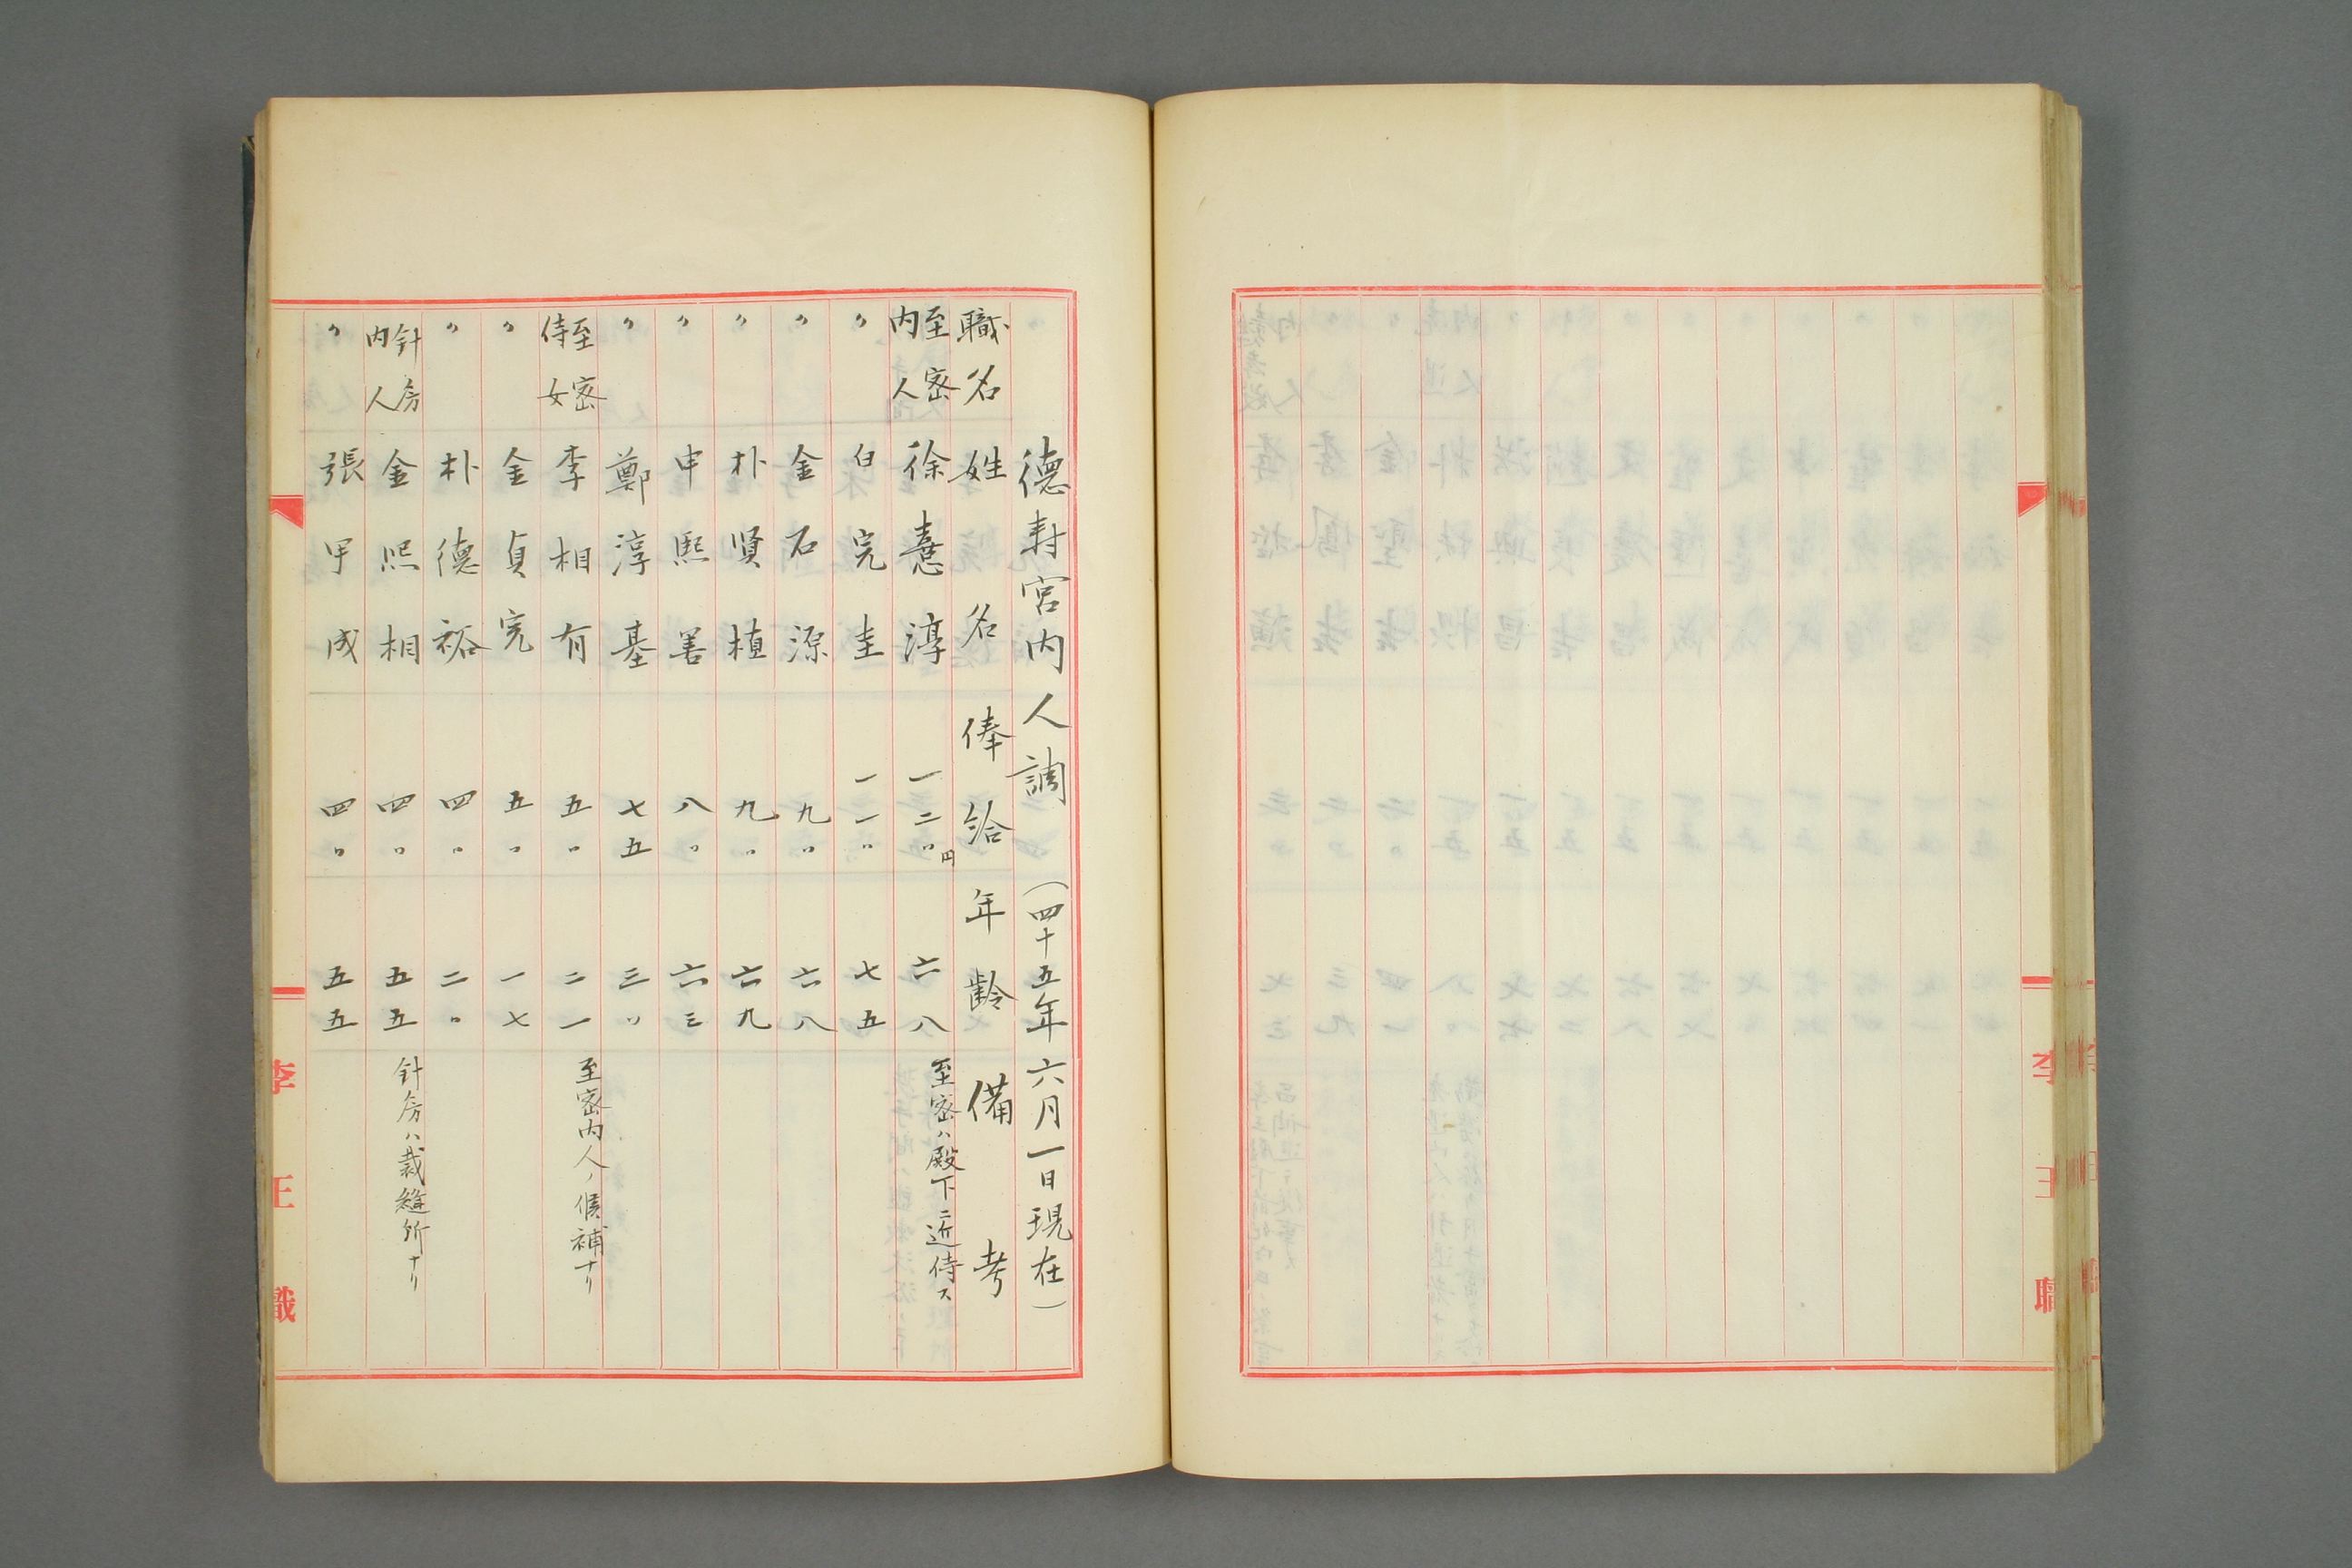 德寿宮内人調（四十五年六月一日現在）
職名 姓名 俸給 年齢 備考
至密内人 徐憙淳 一二〇円 六八 至密ハ殿下ニ近侍ス
〃 白完圭 一一〇 七五
〃 金石源 九〇 六八
〃 朴賢植 九〇 六九
〃 申熙善 八〇 六三
〃 鄭淳基 七五 三〇
至密侍女 李相有 五〇 二一 至密内人ノ候補ナリ
〃 金貞完 五〇 一七
〃 朴德裕 四〇 二〇
針房内人 金熙相 四〇 五五 針房ハ裁縫所ナリ
〃 張甲成 四〇 五五
李王職
李王職